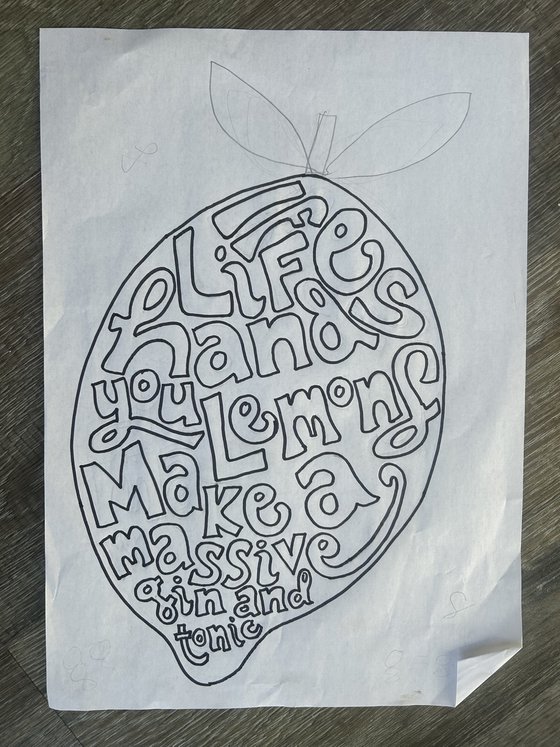 LiFe
hands
you Lemons
Make a
massive
gin and
tonic